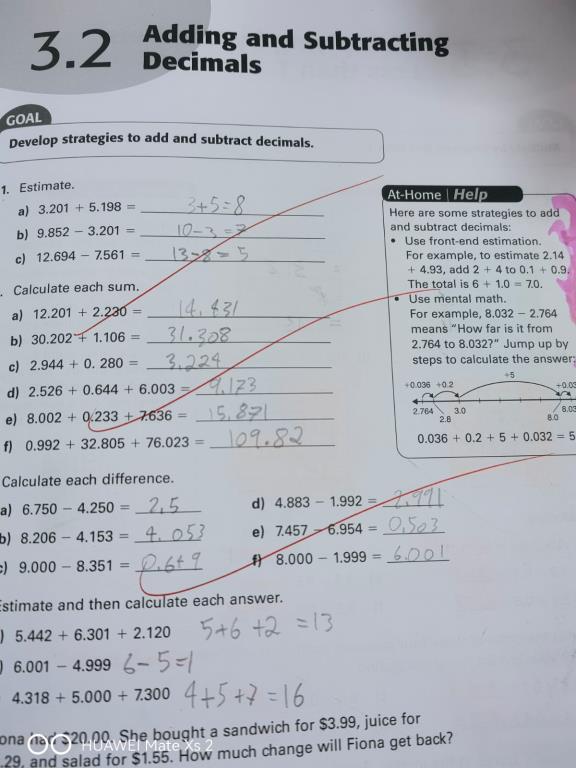 3.2 Adding and Subtracting
Decimals
GOAL
Develop strategies to add and subtract decimals.
1. Estimate.
a) 3.201 + 5.198 = 3+5=8
b) 9.852 − 3.201 = 10-3=7
c) 12.694 − 7.561 = 13-8=5
. Calculate each sum.
a) 12.201 + 2.230 = 14.431
b) 30.202 + 1.106 = 31.308
c) 2.944 + 0. 280 = 3.224
d) 2.526 + 0.644 + 6.003 = 9.173
e) 8.002 + 0.233 + 7.636 = 15.871
f) 0.992 + 32.805 + 76.023 = 109.82
At-Home Help
Here are some strategies to add
and subtract decimals:
• Use front-end estimation.
For example, to estimate 2.14
+ 4.93, add 2 + 4 to 0.1 + 0.9.
The total is 6 + 1.0 = 7.0.
• Use mental math.
For example, 8.032 − 2.764
means "How far is it from
2.764 to 8.032?" Jump up by
steps to calculate the answer:
+5
+0.036 +0.2 +0.03
2.764 3.0 8.03
2.8 8.0
0.036 + 0.2 + 5 + 0.032 = 5
Calculate each difference.
a) 6.750 − 4.250 = 2.5
b) 8.206 − 4.153 = 4.053
c) 9.000 − 8.351 =
d) 4.883 − 1.992 = 2.991
e) 7.457 − 6.954 = 0.503
f) 8.000 − 1.999 = 6.001
Estimate and then calculate each answer.
) 5.442 + 6.301 + 2.120 5+6+2=13
) 6.001 − 4.999 6-5=1
4.318 + 5.000 + 7.300 4+5+7=16
ona had $20.00. She bought a sandwich for $3.99, juice for
.29, and salad for $1.55. How much change will Fiona get back?
HUAWEI Mate Xs 2